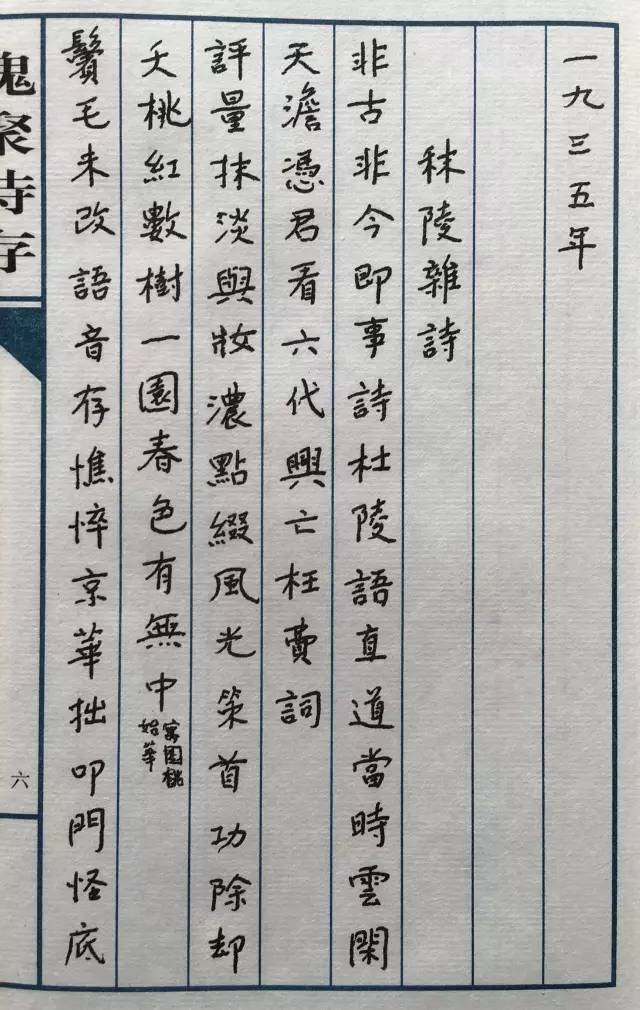 一九三五年
秣陵雜詩
非古非今即事詩杜陵語直道當時雲閑
天澹憑君看六代興亡枉費詞
評量抹淡與妝濃點綴風光策首功除却
夭桃紅數樹一園春色有無中
寓園桃
始華
鬢毛未改語音存憔悴京華拙叩門怪底
愧聚詩存
六